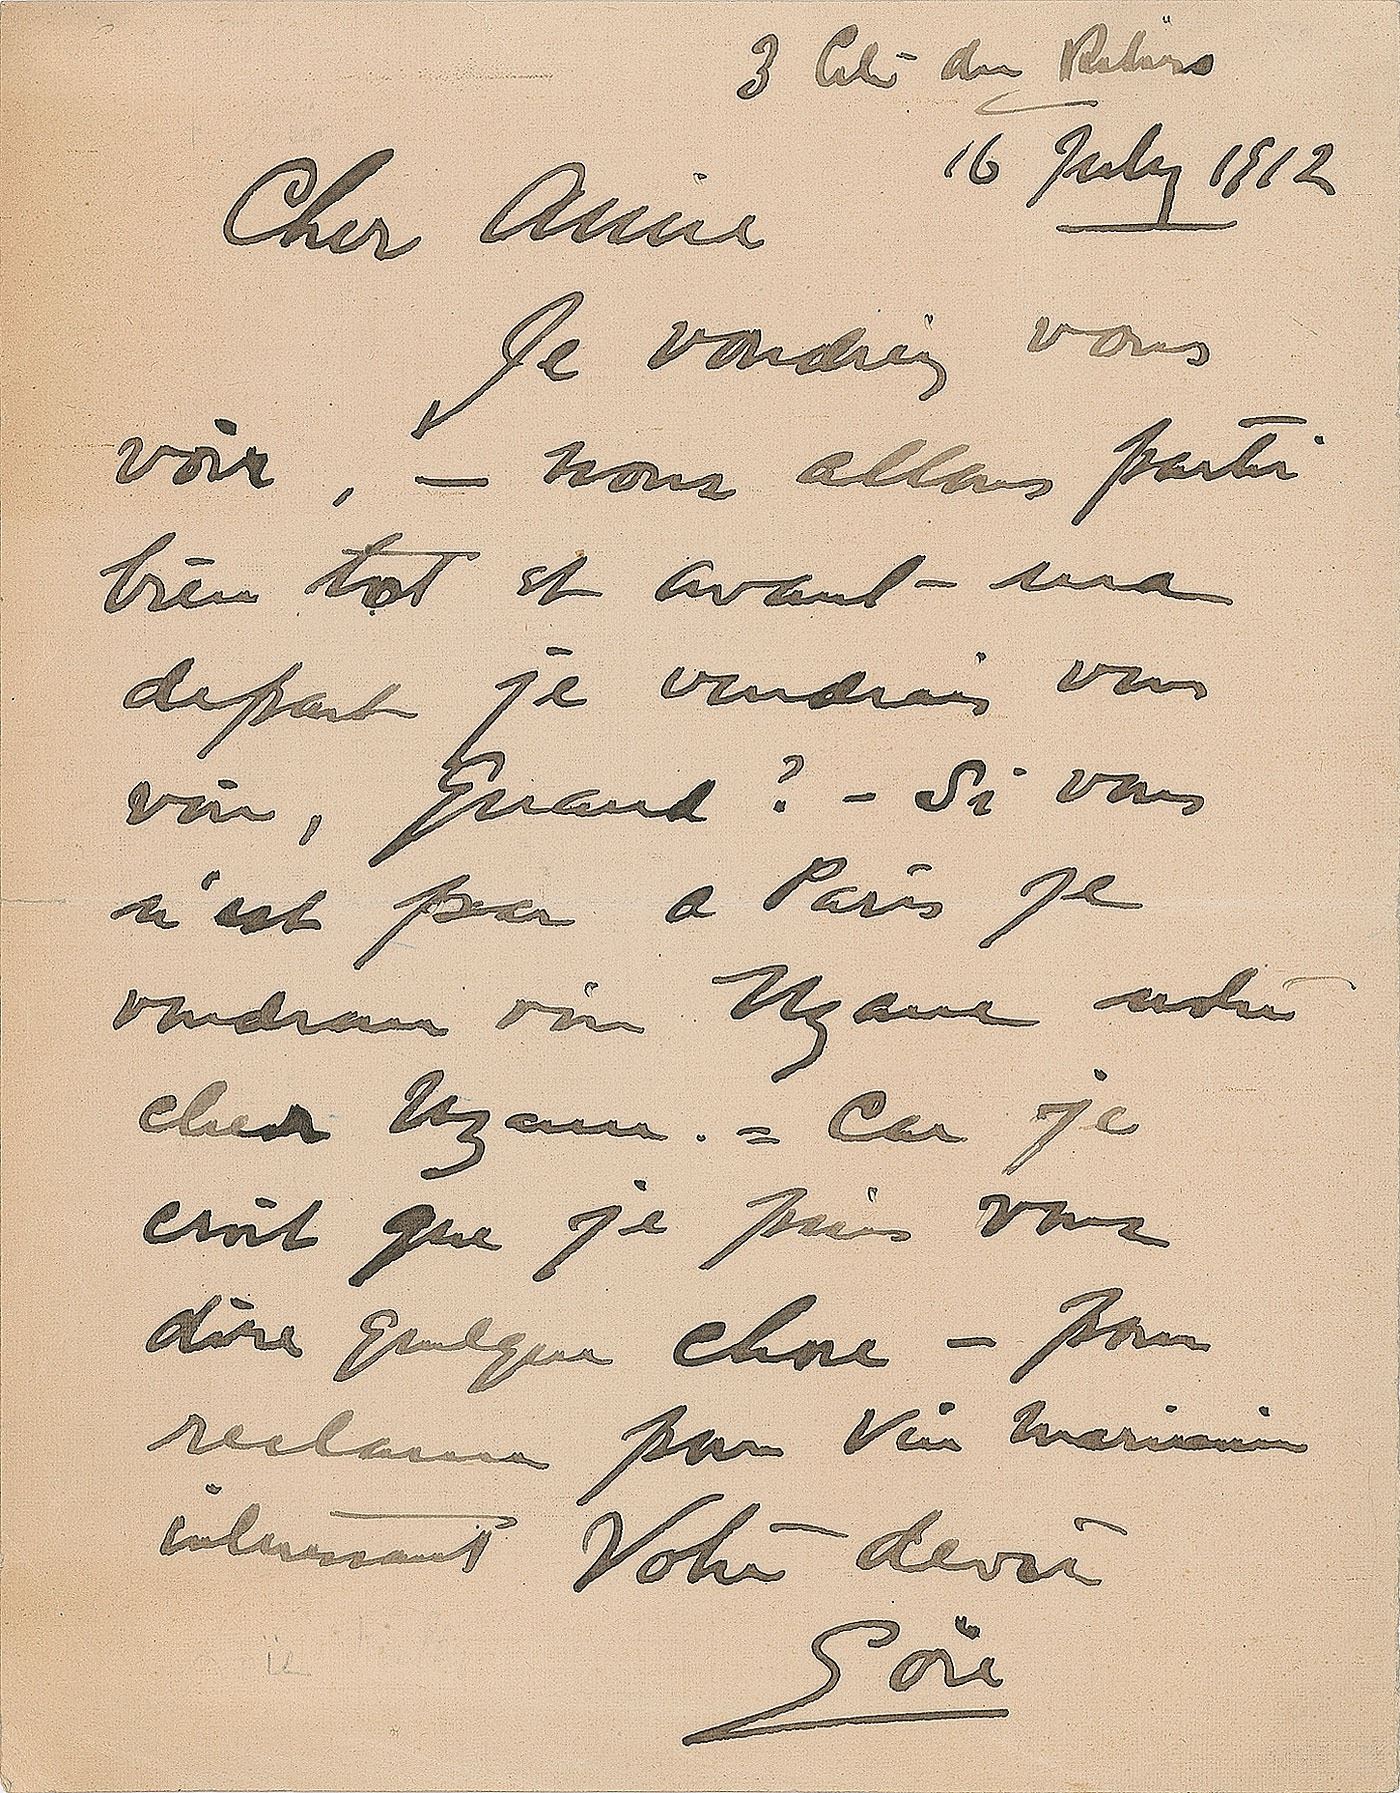 3 Cité du Retiro
16 July 1912
Cher Amie
Je voudrez vous
voir, — nous allons partir
bien tot et avant ma
depart je voudrais vous
voir, Quand? — Si vous
n'est pas a Paris je
voudrais voir Uzanne notre
cher Uzanne. = Car je
croit que je puis vous
dire quelque chose — pour
reclame pour Vin Mariani
interessant Votre devoir
Goré